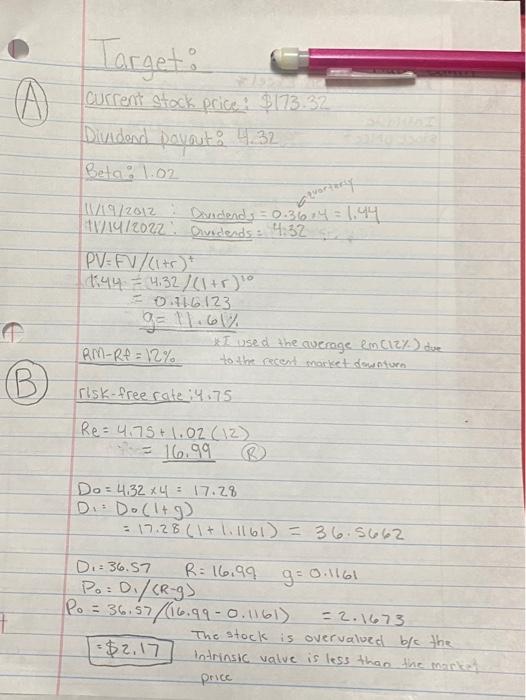 Target:
A
current stock price: $173.32
Dividend payout: 4.32
Beta: 1.02
quarterly
11/19/2012 : Dividends = 0.36 x 4 = 1.44
11/14/2022 : Dividends = 4.32
PV=FV/(1+r)^t
1.44 = 4.32/(1+r)^10
= 0.116123
g= 11.61%
*I used the average Rm (12%) due
to the recent market downturn
RM-Rf = 12%
B
risk-free rate: 4.75
Re = 4.75 + 1.02 (12)
= 16.99 (R)
Do = 4.32 x 4 = 17.28
D1 = Do(1+g)
= 17.28 (1 + 1.1161) = 36.5662
D1= 36.57 R= 16.99 g= 0.1161
Po = D1/(R-g)
Po = 36.57/(16.99 - 0.1161) = 2.1673
= $2.17
The stock is overvalued b/c the
intrinsic value is less than the market
price